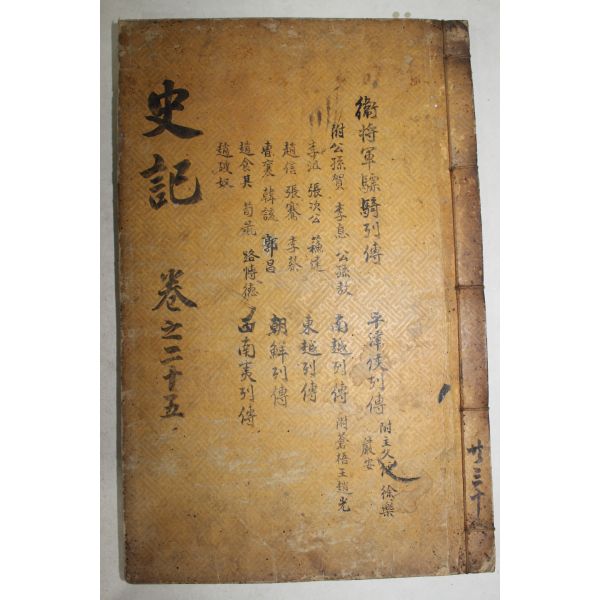 共三十
衛將軍驃騎列傳
附公孫賀 李息 公孫敖
李沮 張次公 蘇建
趙信 張騫 李蔡
曹襄 韓說 郭昌
趙食其 荀彘 路博德
趙破奴
平津侯列傳 附主父偃 徐樂
嚴安
南越列傳 附蒼梧王趙光
東越列傳
朝鮮列傳
西南夷列傳
史記 卷之二十五